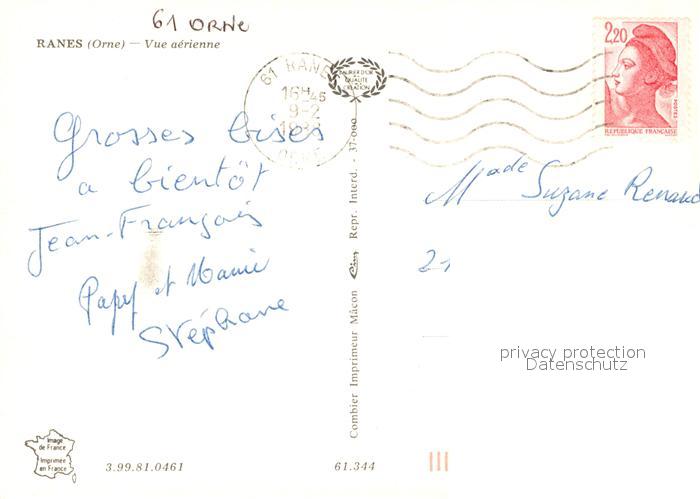 61 ORNE
RANES (Orne) — Vue aérienne
61 RANES
16H45
9-2
ORNE
LAURIER D'OR
QUALITE
CREATION
2,20
POSTES
REPUBLIQUE FRANÇAISE
Grosses bises
a bientôt
Jean-François
Papy et Mamie
Stéphane
Combier Imprimeur Mâcon Cim Repr. Interd. - 37-000
Made Suzane Renaud
21
privacy protection
Datenschutz
Image
de France
Imprimée
en France
3.99.81.0461
61.344